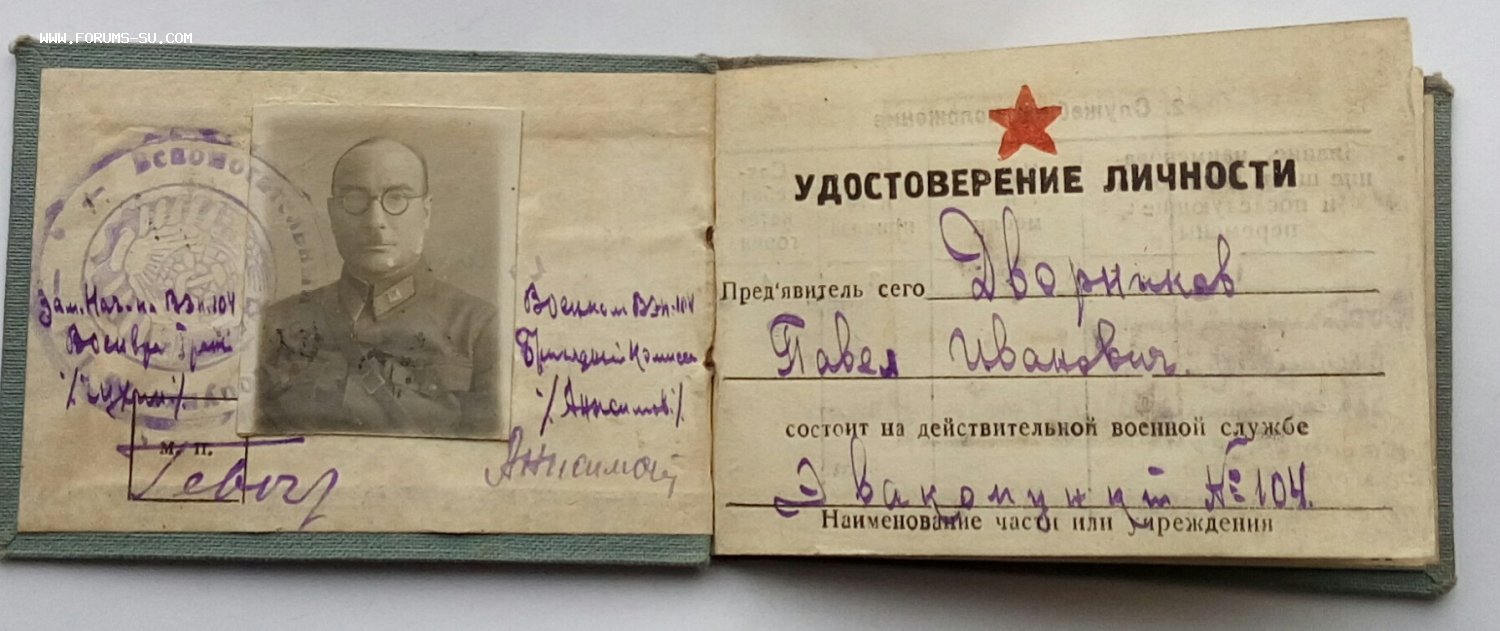 WWW.FORUMS-SU.COM
Зам. Нач-ка Вэп. 104
м. п.
Военком Вэп. 104
Бригадный Комиссар
/Анисимов/
Анисимов
УДОСТОВЕРЕНИЕ ЛИЧНОСТИ
Пред'явитель сего Дворников
Павел Иванович
состоит на действительной военной службе
Эвакопункт № 104.
Наименование части или учреждения
2. Служебное положение